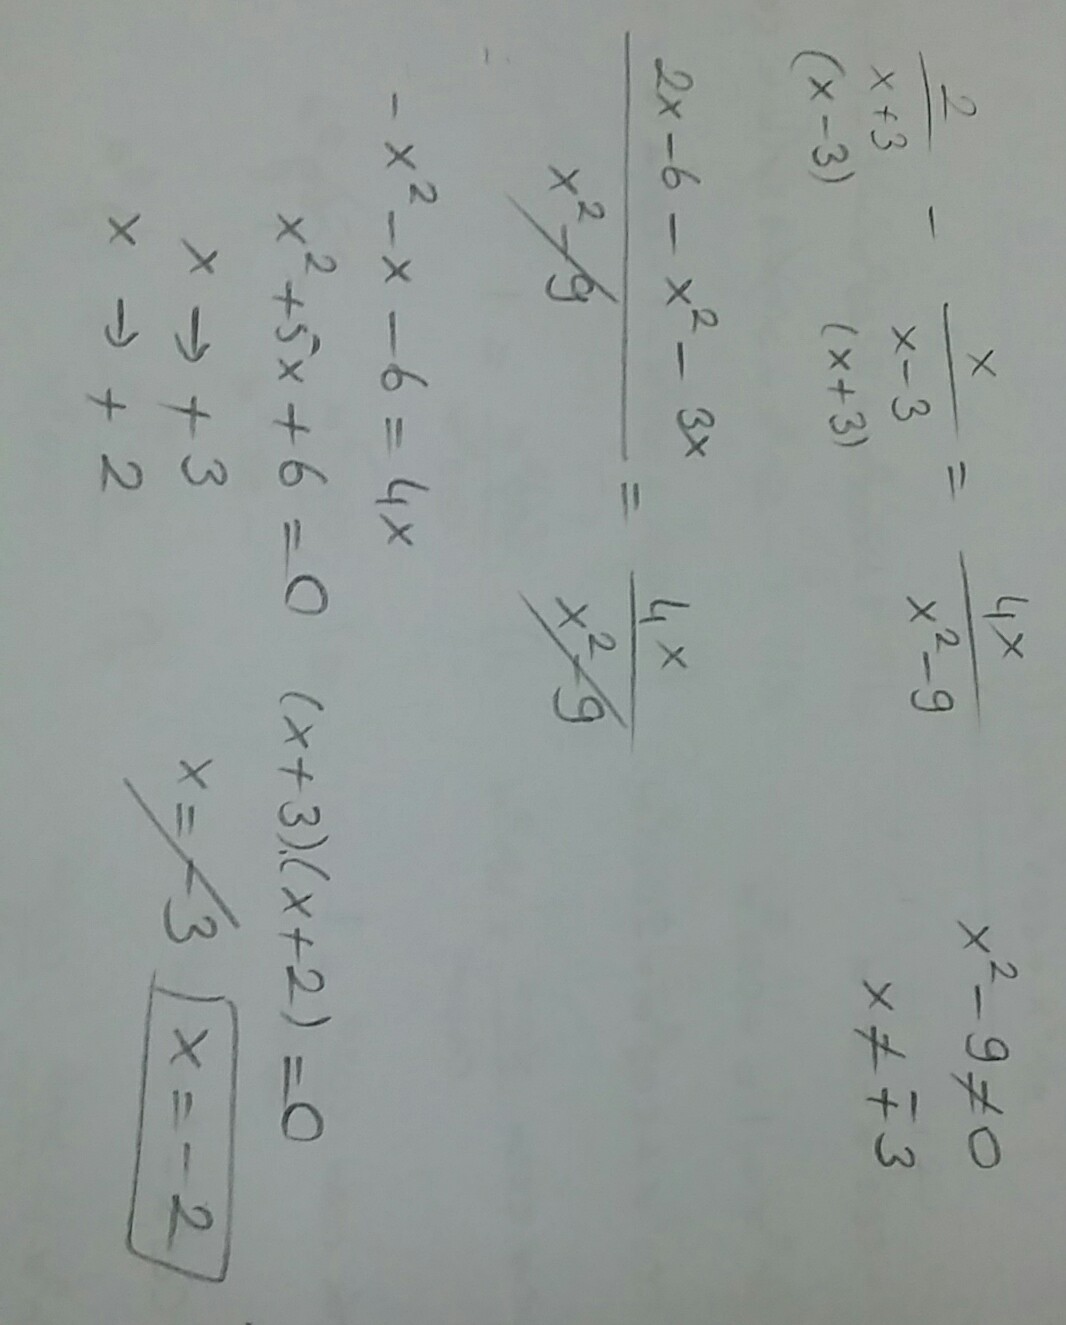 2/(x+3) - x/(x-3) = 4x/(x²-9) x²-9≠0
(x-3) (x+3) x≠∓3
(2x-6-x²-3x)/(x²-9) = 4x/(x²-9)
-x²-x-6=4x
x²+5x+6=0 (x+3).(x+2)=0
x→+3 x=-3 x=-2
x→+2